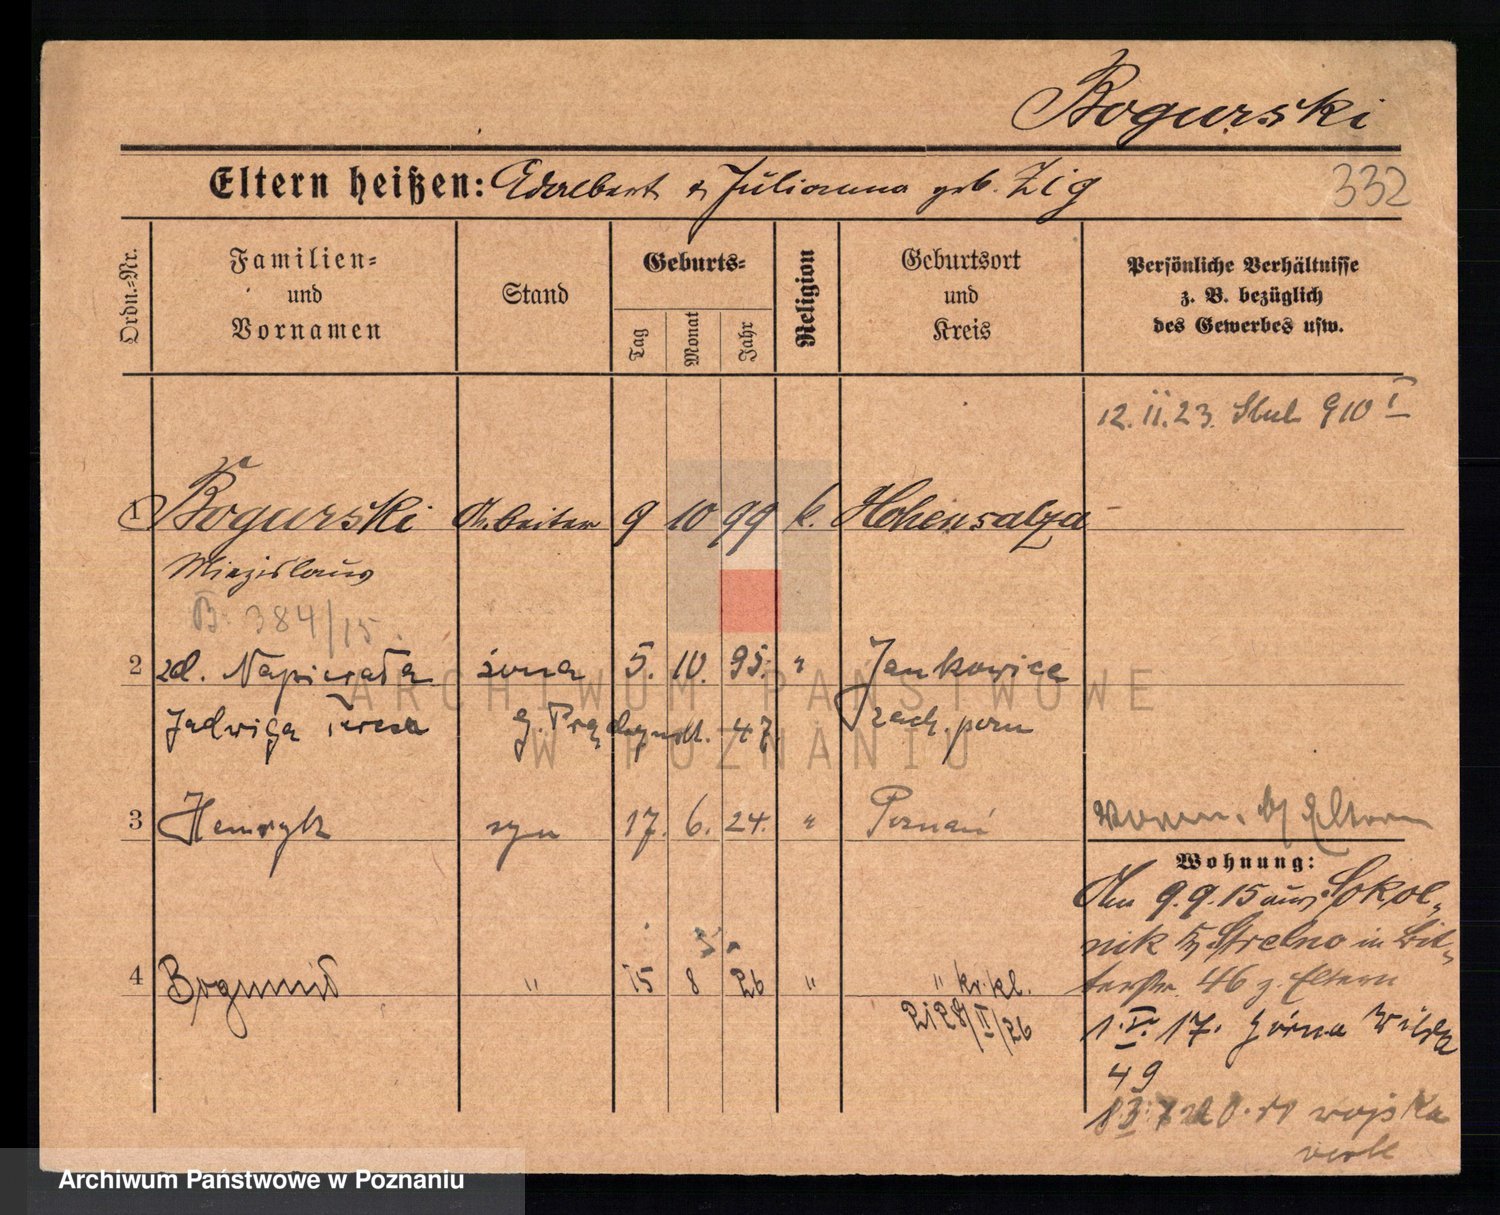 Bogurski
Eltern heißen: Adalbert & Julianna geb. Zig
332
Ordn.-Nr.
Familien-
und
Vornamen
Stand
Geburts-
Tag
Monat
Jahr
Religion
Geburtsort
und
Kreis
Persönliche Verhältnisse
z. B. bezüglich
des Gewerbes usw.
12. II. 23. 910 I
1 Bogurski Arbeiter 9 10 99 k. Hohensalza
Miezislaus
B. 384/15.
2 zd. Napierała żona 5. 10. 95. " Jankowice
Jadwiga Teresa
g. 47. zach. pozn
3 Henryk syn 17. 6. 24. " Poznań
b/ Eltern
Wohnung:
Am 9.9.15 aus Sokol-
nik Kr. Strelno in Bit-
terstr. 46 z. Eltern
4 Bogumił " 15 8 26 " " kr. kl.
II/26
1. V. 17. Górna Wilda
49
wojska
ARCHIWUM PAŃSTWOWE
W POZNANIU
Archiwum Państwowe w Poznaniu